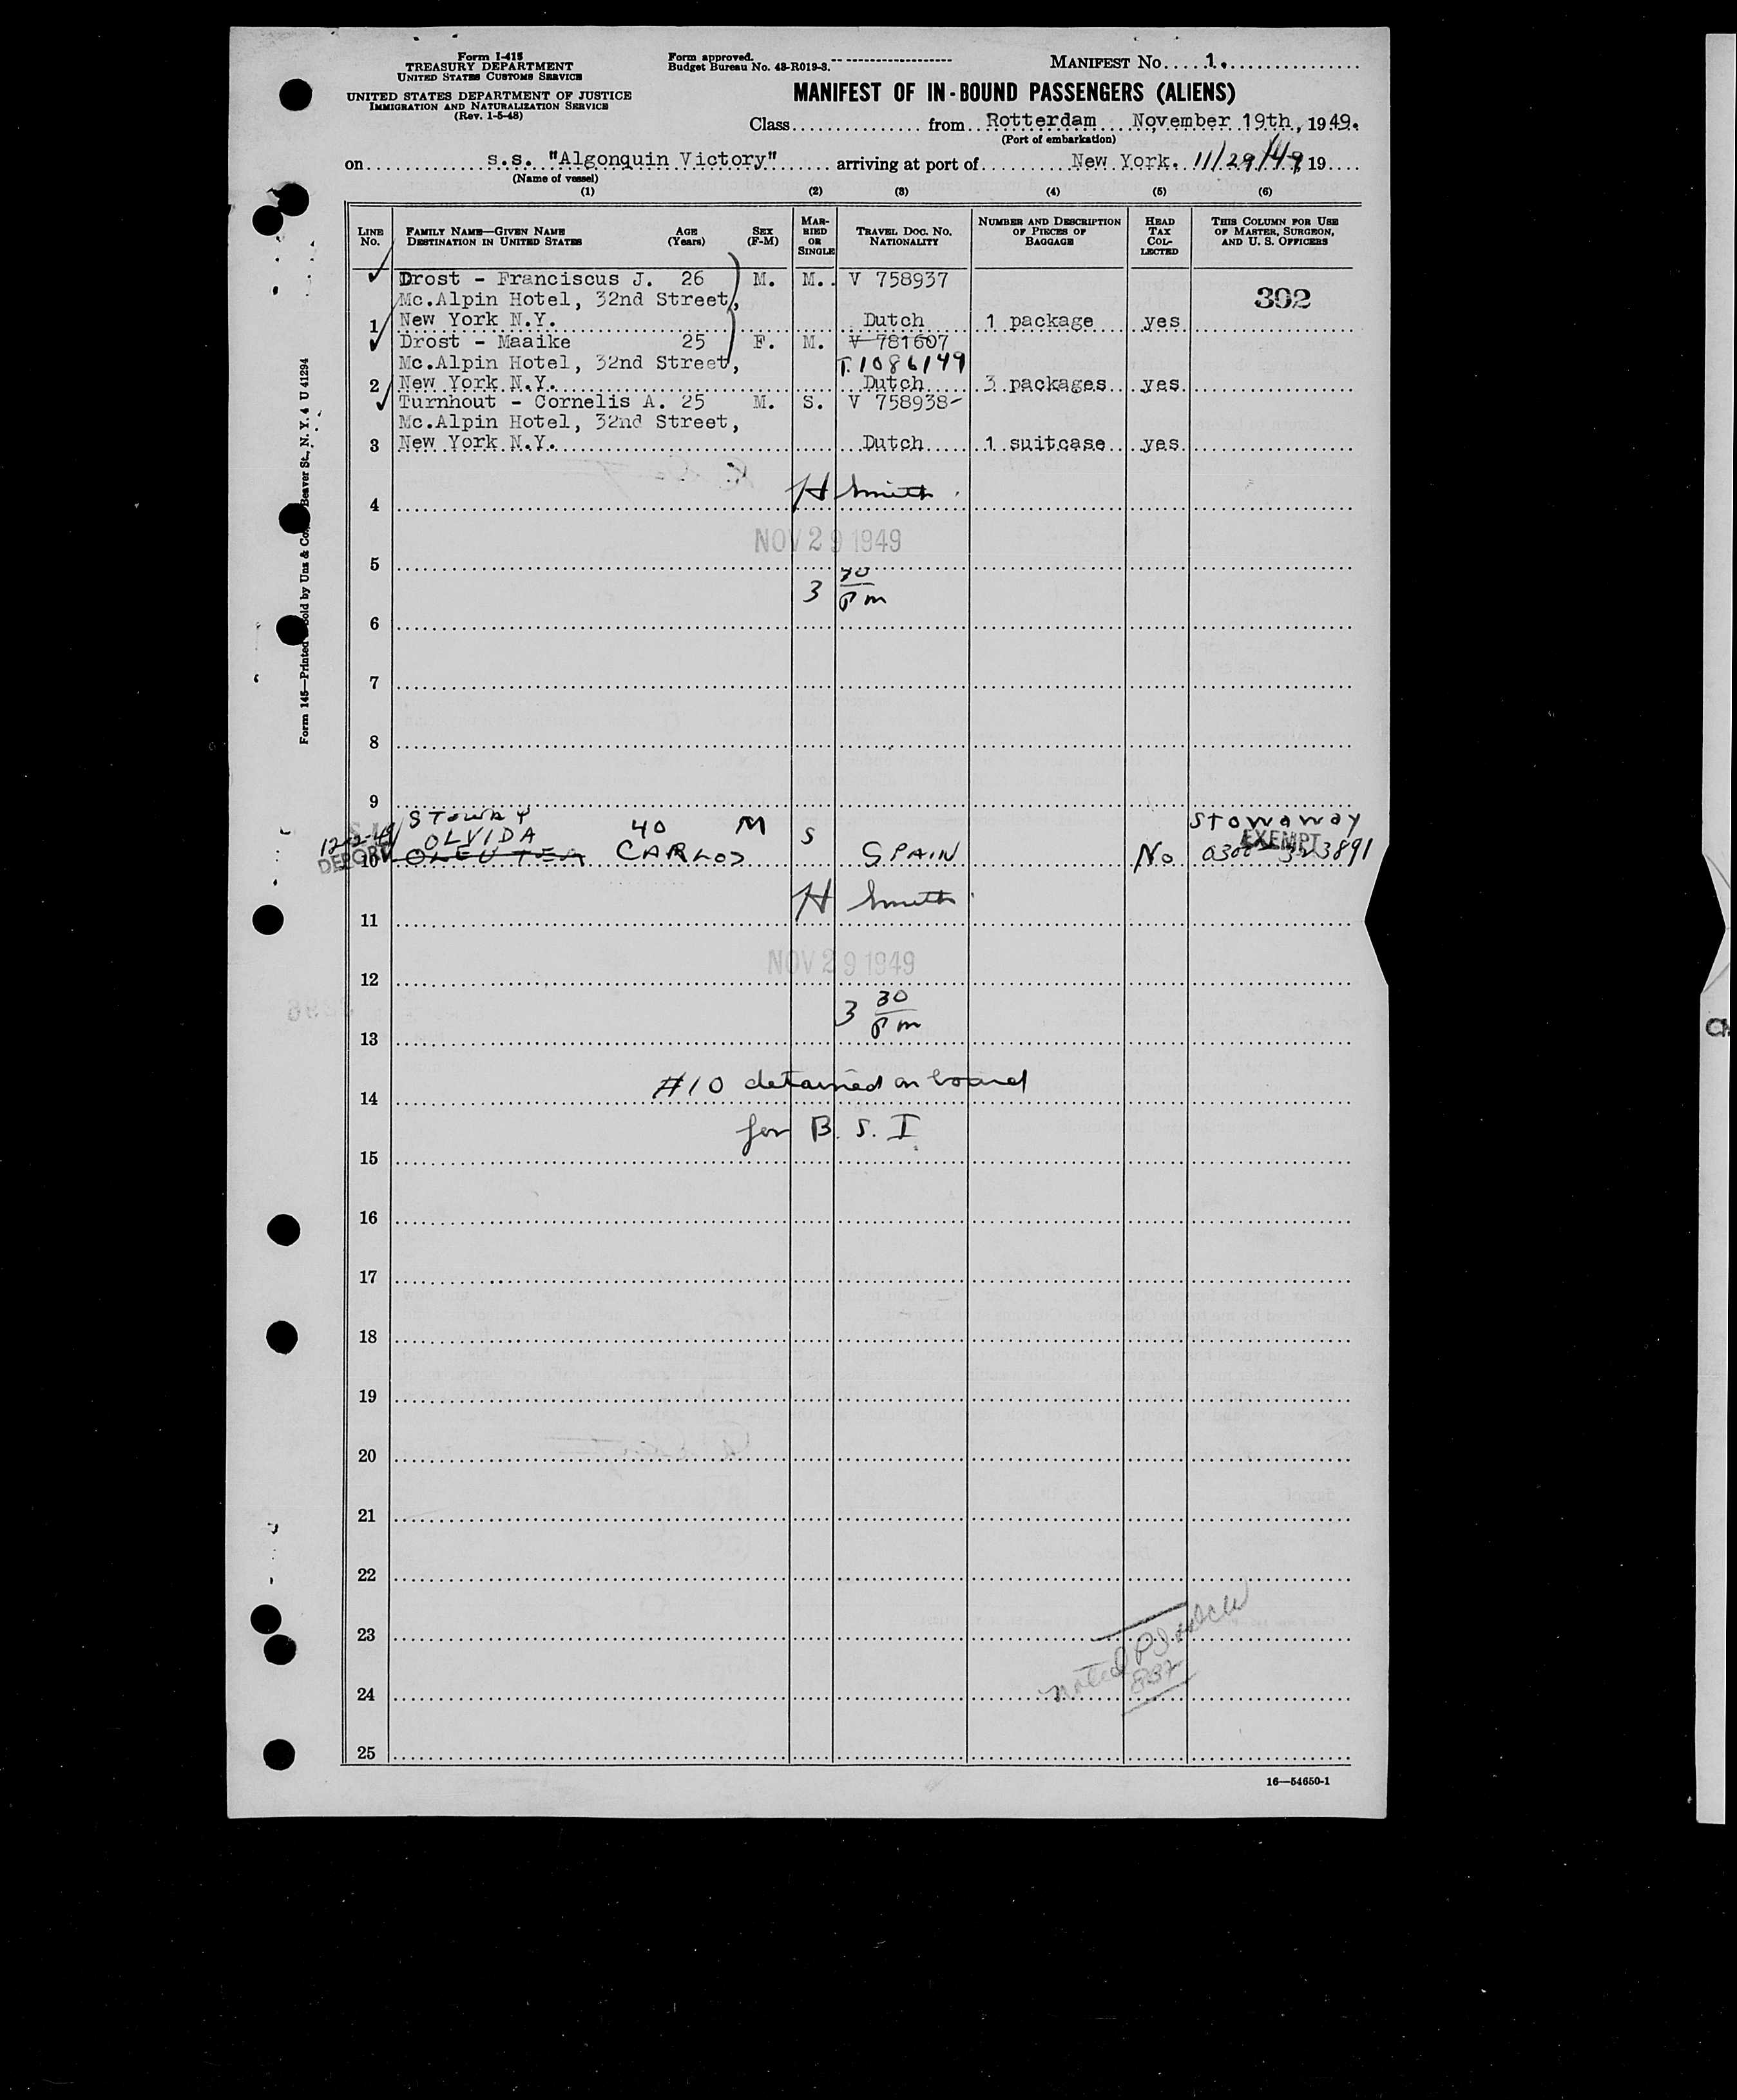 Form I-415
TREASURY DEPARTMENT
UNITED STATES CUSTOMS SERVICE
UNITED STATES DEPARTMENT OF JUSTICE
IMMIGRATION AND NATURALIZATION SERVICE
(Rev. 1-5-48)
Form approved.
Budget Bureau No. 43-R019-3.
MANIFEST No. 1.
MANIFEST OF IN-BOUND PASSENGERS (ALIENS)
Class from Rotterdam November 19th, 1949.
(Port of embarkation)
on s.s. "Algonquin Victory" arriving at port of New York. 11/29/49, 19
(Name of vessel)
(1) (2) (3) (4) (5) (6)
LINE No. FAMILY NAME—GIVEN NAME DESTINATION IN UNITED STATES AGE (Years) SEX (F-M) MARRIED OR SINGLE TRAVEL DOC. NO. NATIONALITY NUMBER AND DESCRIPTION OF PIECES OF BAGGAGE HEAD TAX COLLECTED THIS COLUMN FOR USE OF MASTER, SURGEON, AND U. S. OFFICERS
Drost - Franciscus J. 26 M. M. V 758937
Mc.Alpin Hotel, 32nd Street, 392
1 New York N.Y. Dutch 1 package yes
Drost - Maaike 25 F. M. V 781607
Mc.Alpin Hotel, 32nd Street, T.1086149
2 New York N.Y. Dutch 3 packages yes
Turnhout - Cornelis A. 25 M. S. V 758938
Mc.Alpin Hotel, 32nd Street,
3 New York N.Y. Dutch 1 suitcase yes
4 H Smith
NOV 29 1949
5
3 30 pm
6
7
8
9
STOWAY Stowaway
12-2-49 OLVIDA 40 M S EXEMPT
DEPORT 10 CARLOS SPAIN No 0300-323891
11 H Smith
12 NOV 29 1949
3 30 pm
13
14 #10 detained on board
for B. S. I
15
16
17
18
19
20
21
22
23
noted
24
25
16—54650-1
Form 145—Printed Sold by Unz & Co., Beaver St., N. Y. 4 U 41294